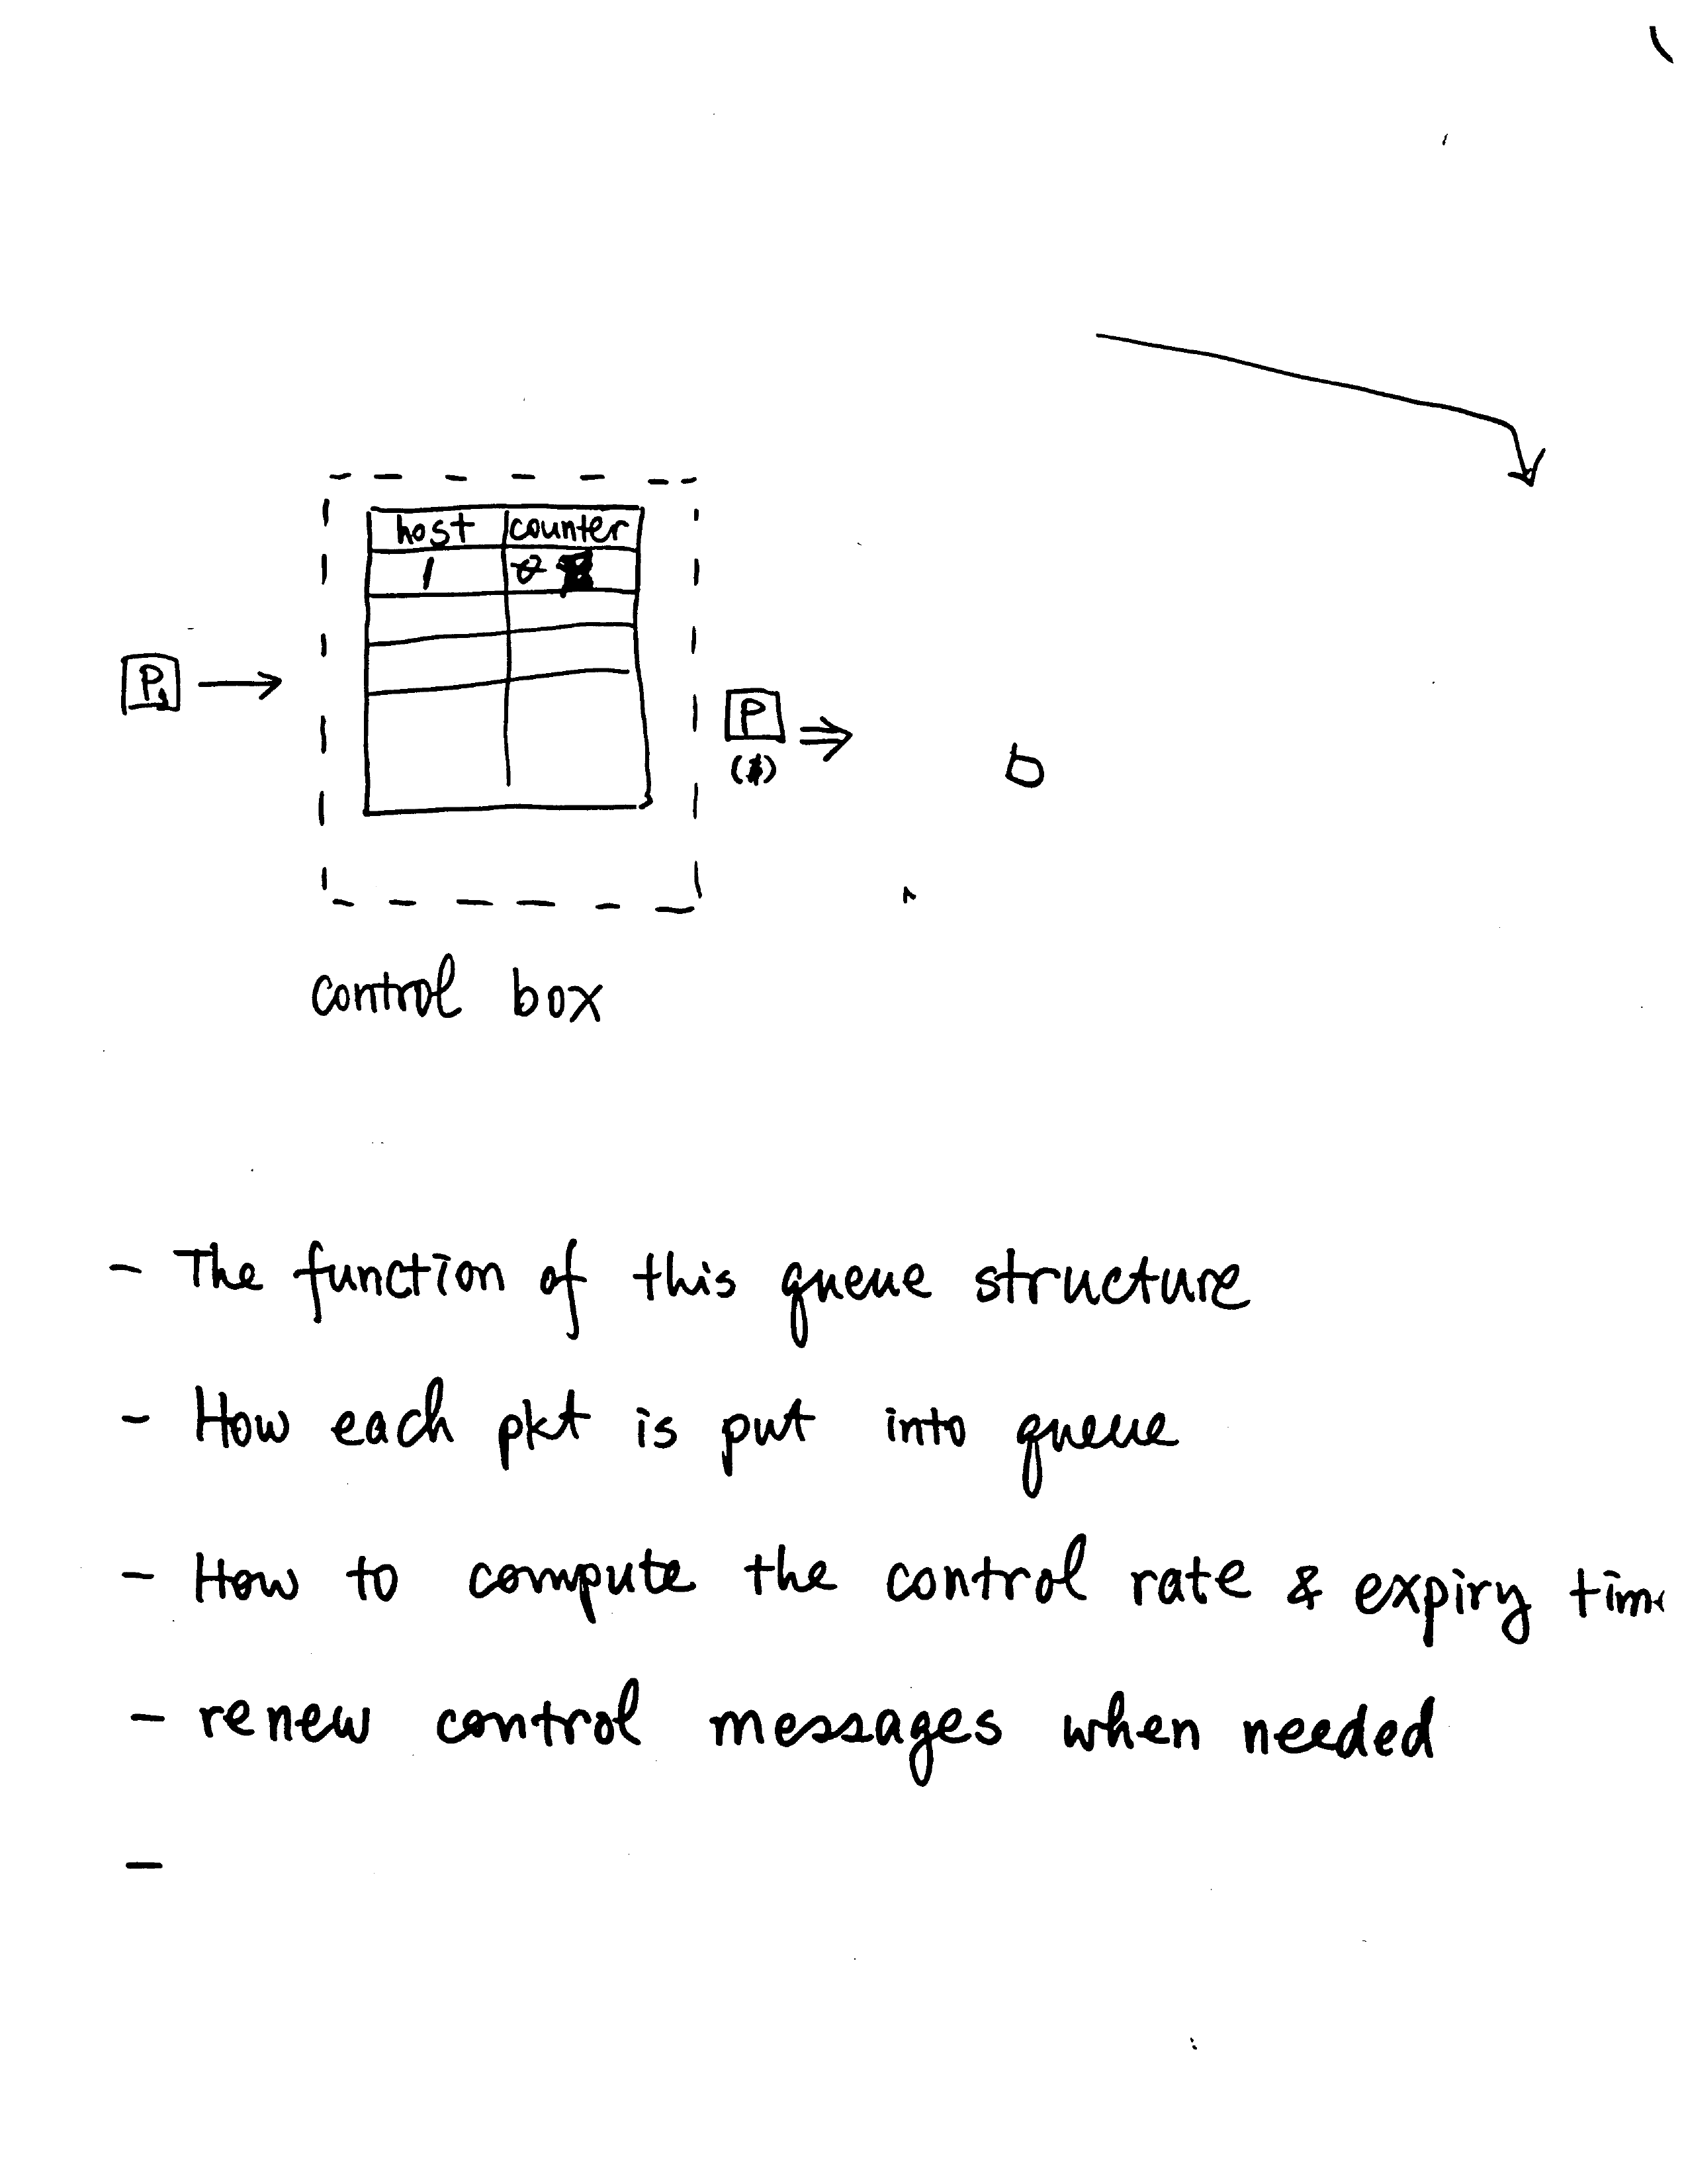 host counter
1
P
P
b
control box
- The function of this queue structure
- How each pkt is put into queue
- How to compute the control rate & expiry time
- renew control messages when needed
-